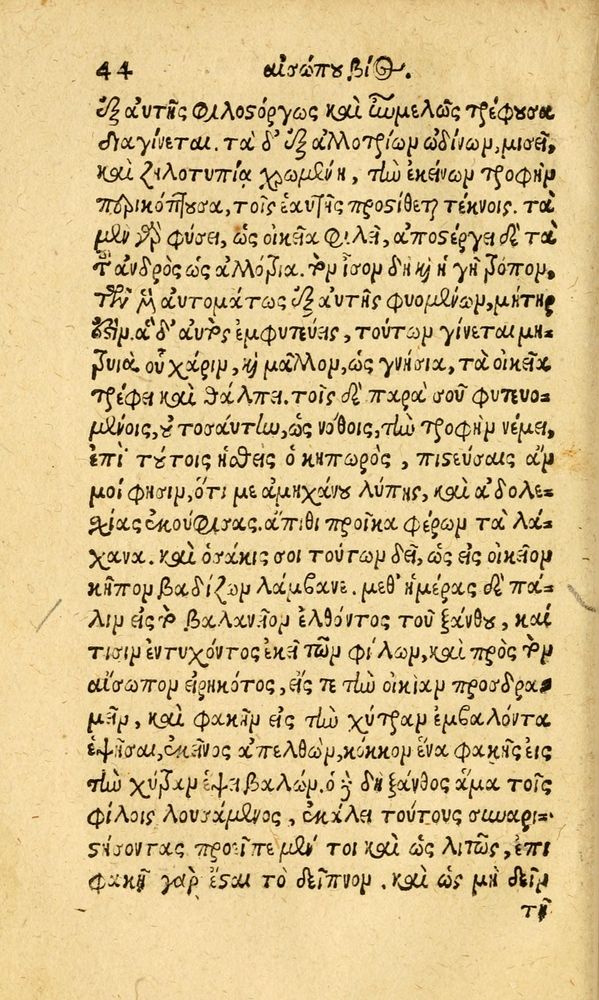 44 αἰσώπου βίος.
ἐξ αὐτῆς φιλοστόργως καὶ ἐμμελῶς τρέφουσα
διαγίνεται. τὰ δ' ἐξ ἀλλοτρίων ὠδίνων, μισεῖ,
καὶ ζηλοτυπίᾳ χρωμένη, τὴν ἐκείνων τροφὴν
περικόπτουσα, τοῖς ἑαυτῆς προστίθεται τέκνοις. τὰ
μὲν γὰρ φύσει, ὡς οἰκεῖα φιλεῖ, ἀποστέργει δὲ τὰ
τοῦ ἀνδρὸς ὡς ἀλλότρια. τὸν ἴσον δὴ καὶ ἡ γῆ τρόπον,
τῶν μὲν αὐτομάτως ἐξ αὐτῆς φυομένων, μήτηρ
ἐστίν. ἃ δ' αὐτὸς ἐμφυτεύεις, τούτων γίνεται μη-
τρυιά. οὗ χάριν, καὶ μᾶλλον, ὡς γνήσια, τὰ οἰκεῖα
τρέφει καὶ θάλπει. τοῖς δὲ παρὰ σοῦ φυτευο-
μένοις, οὐ τοσαύτην, ὡς νόθοις, τὴν τροφὴν νέμει.
ἐπὶ τούτοις ἡσθεὶς ὁ κηπωρὸς, πιστεύσαις ἄν
μοί φησιν, ὅτι με ἀμηχάνου λύπης, καὶ ἀδολε-
σχίας ἐκούφισας. ἄπιθι προῖκα φέρων τὰ λά-
χανα. καὶ ὁσάκις σοι τούτων δεῖ, ὡς εἰς οἰκεῖον
κῆπον βαδίζων λάμβανε. μεθ' ἡμέρας δὲ πά-
λιν εἰς τὸ βαλανεῖον ἐλθόντος τοῦ ξάνθου, καί
τισιν ἐντυχόντος ἐκεῖ τῶν φίλων, καὶ πρὸς τὸν
αἴσωπον εἰρηκότος, εἴς τε τὴν οἰκίαν προσδρα-
μεῖν, καὶ φακῆν εἰς τὴν χύτραν ἐμβαλόντα
ἑψῆσαι, ἐκεῖνος ἀπελθὼν, κόκκον ἕνα φακῆς εἰς
τὴν χύτραν ἕψει βαλών. ὁ γοῦν δὴ ξάνθος ἅμα τοῖς
φίλοις λουσάμενος, ἐκάλει τούτους συναρι-
στήσοντας προεῖπε μέν τοι καὶ ὡς λιτῶς, ἐπὶ
φακῇ γὰρ ἔσται τὸ δεῖπνον. καὶ ὡς μὴ δεῖν
τῇ